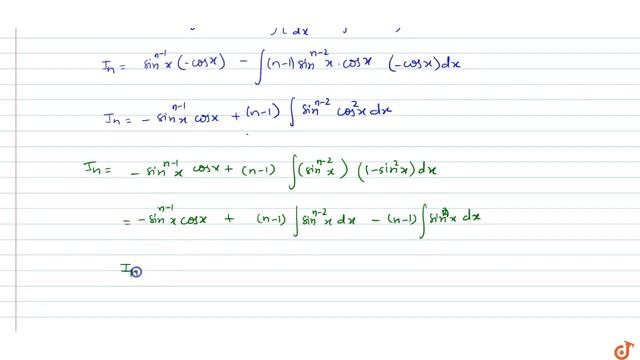 dx
Iₙ = sinⁿ⁻¹x (-cosx) - ∫(n-1) sinⁿ⁻²x · cosx (-cosx) dx
Iₙ = - sinⁿ⁻¹x cosx + (n-1) ∫ sinⁿ⁻² cos²x dx
Iₙ = - sinⁿ⁻¹x cosx + (n-1) ∫(sinⁿ⁻²x) (1-sin²x) dx
= - sinⁿ⁻¹x cosx + (n-1) ∫ sinⁿ⁻²x dx - (n-1) ∫ sinⁿx dx
Iₙ